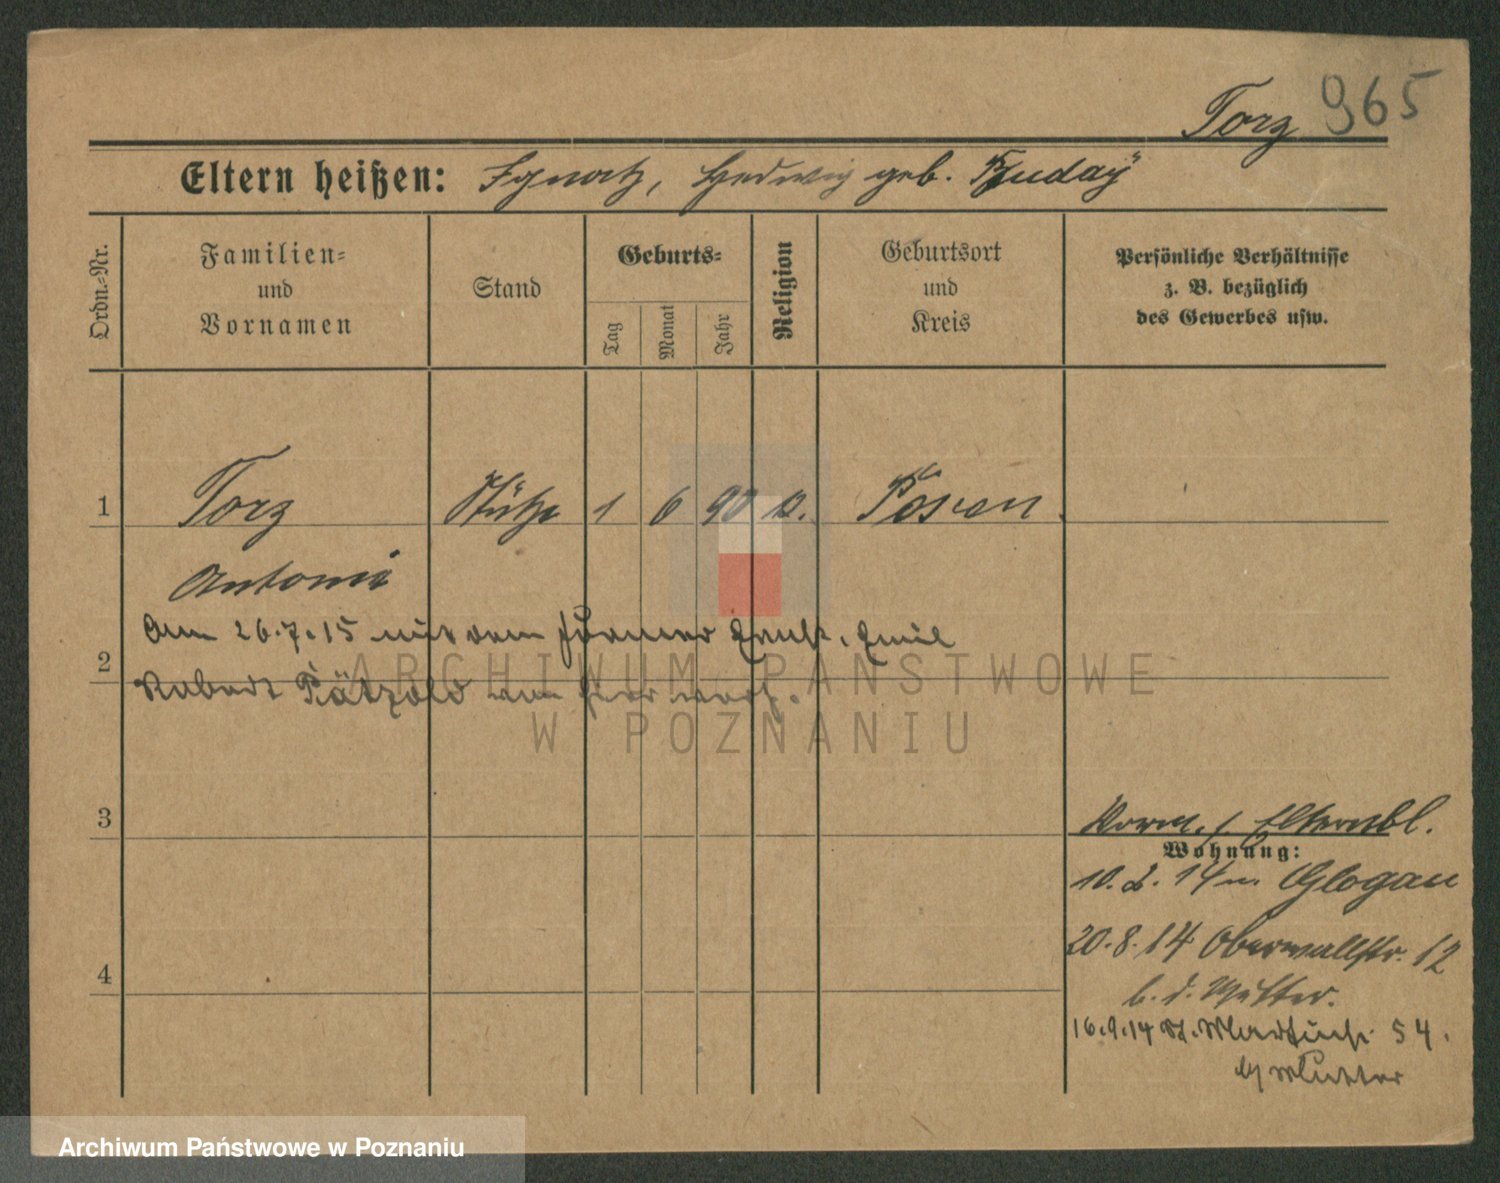 Torz 965
Eltern heißen: Ignatz, Hedwig geb.
Ordn.-Nr.
Familien-
und
Vornamen
Stand
Geburts-
Tag
Monat
Jahr
Religion
Geburtsort
und
Kreis
Persönliche Verhältnisse
z. B. bezüglich
des Gewerbes usw.
1 Torz Stütze 1 6 90 Posen
Antonie
Am 26.7.15 mit dem Ernst, Emil
2
Robert Pätzold von hier verh.
ARCHIWUM PAŃSTWOWE
W POZNANIU
3
Elternbl.
Wohnung:
10.2.14 n. Glogau
20.8.14 Oberwallstr. 12
4
b. d. Mutter.
16.9.14 St. Martinstr. 54.
Mutter
Archiwum Państwowe w Poznaniu